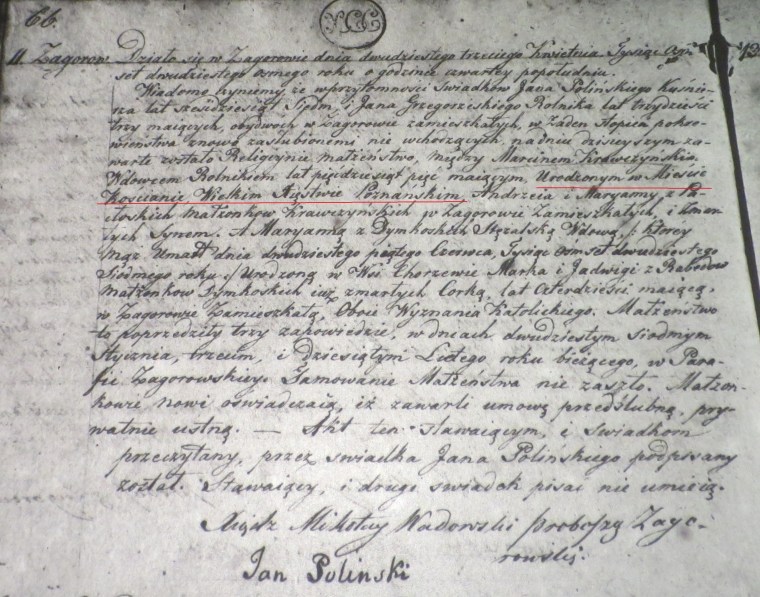 66.
11 Zagorow Działo się w Zagorowie dnia dwudziestego trzeciego Kwietnia Tysiąc Ośm
set dwudziestego osmego roku o godzinie czwartey popołudniu.
Wiadomo czyniemy że wprzytomności Swiadków Jana Polińskiego Kuśnie
rza lat sześćdziesiąt Siedm i Jana Grzegorzeskiego Rolnika lat trzydzieści
trzy maiących, obydwóch w Zagorowie zamieszkałych, w Żaden stopień pokre-
wieństwa znowo zaslubionemi nie wchodzących, na dniu dzisieyszym za-
warte zostało Religijnie małżeństwo, między Marcinem Krawczynskim
Wdowcem Rolnikiem lat pięcdziesiąt pięć maiącym, Urodzonym w Miescie
Kościanie Wielkim Xięstwie Poznańskim, Andrzeia i Maryanny z
Małżonków Krawczynskich w Zagorowie Zamieszkałych, i Zmar
łych Synem. A Maryanną z Dymkoskich Wdową /: ktorey
Mąż Umarł dnia dwudziestego piątego Czerwca, Tysiąc osmset dwudziestego
Siodmego roku :/ Urodzoną w Wsi Chorzewie Marka i Jadwigi z
Małżonkow Dymkoskich iuż zmarłych Corką, lat czterdzieści maiącą,
w Zagorowie Zamieszkałą, Oboie Wyznania Katolickiego. Małżeństwo
to poprzedziły trzy zapowiedzie, w dniach dwudziestym siodmym
Stycznia, trzecim, i dziesiątym Lutego roku bieżącego, w Para-
fii Zagorowskiey. Tamowanie Małżeństwa nie zaszło. Małżon-
kowie nowi oswiadczaią, iż zawarli umowę przedslubną, pry-
watnie ustną. — Akt ten stawaiącym, i swiadkom
przeczytany, przez swiadka Jana Polinskiego podpisany
został. Stawaiący, i drugi swiadek pisać nie umieią.
Xiądz Mikołay Wadowski Proboszcz Zago-
rowski.
Jan Polinski